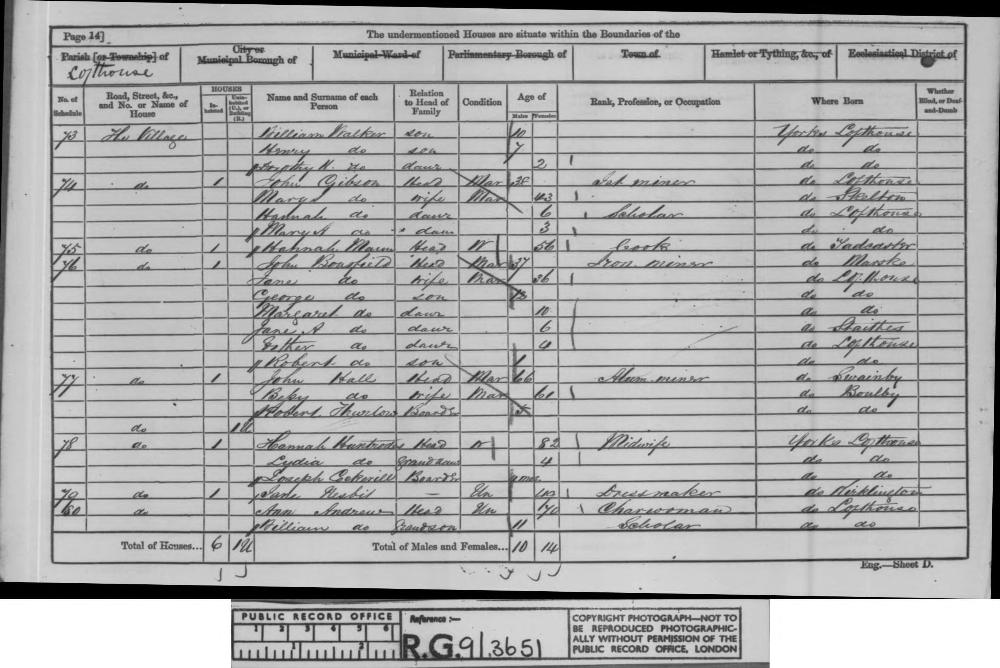 Page 14]
The undermentioned Houses are situate within the Boundaries of the
Parish [or Township] of
Lofthouse
City or
Municipal Borough of
Municipal Ward of
Parliamentary Borough of
Town of
Hamlet or Tything, &c., of
Ecclesiastical District of
No. of Schedule
Road, Street, &c., and No. or Name of House
HOUSES
In-habited
Unin-habited (U.), or Building (B.)
Name and Surname of each Person
Relation to Head of Family
Condition
Age of
Males
Females
Rank, Profession, or Occupation
Where Born
Whether Blind, or Deaf-and-Dumb
73 The Village William Walker son 10 Yorks Lofthouse
Henry do son 7 do do
Dorothy N. do daur 2 do do
74 do 1 John Gibson Head Mar 38 Jet miner do Lofthouse
Mary do wife Mar 43 do Skelton
Hannah do daur 6 Scholar do Lofthouse
Mary A do daur 3 do do
75 do 1 Hannah Head W 56 Cook do Tadcaster
76 do 1 John Bonsfield Head Mar 37 Iron miner do Marske
Jane do wife Mar 36 do Lofthouse
George do son do do
Margaret do daur 10 do do
Jane A do daur 6 do Staithes
Esther do daur 4 do Lofthouse
Robert do son 1 do do
77 do 1 John Hall Head Mar 66 Alum miner do Swainby
Beky do wife Mar 61 do Boulby
Robert Boarder 5 do do
do 1U
78 do 1 Hannah Head W 82 Midwife Yorks Lofthouse
Lydia do Grandaur 4 do do
Joseph Boarder 9 mos do do
79 do 1 Jane Nesbit — Un Dress maker do
80 do Ann Andrew Head Un 70 Charwoman do Lofthouse
William do Grandson 11 Scholar do do
Total of Houses... 6 1U
Total of Males and Females... 10 14
Eng.—Sheet D.
PUBLIC RECORD OFFICE
1 2 3 4 5 6
1 2
Reference :—
R.G. 9/3651
COPYRIGHT PHOTOGRAPH—NOT TO
BE REPRODUCED PHOTOGRAPHIC-
ALLY WITHOUT PERMISSION OF THE
PUBLIC RECORD OFFICE, LONDON